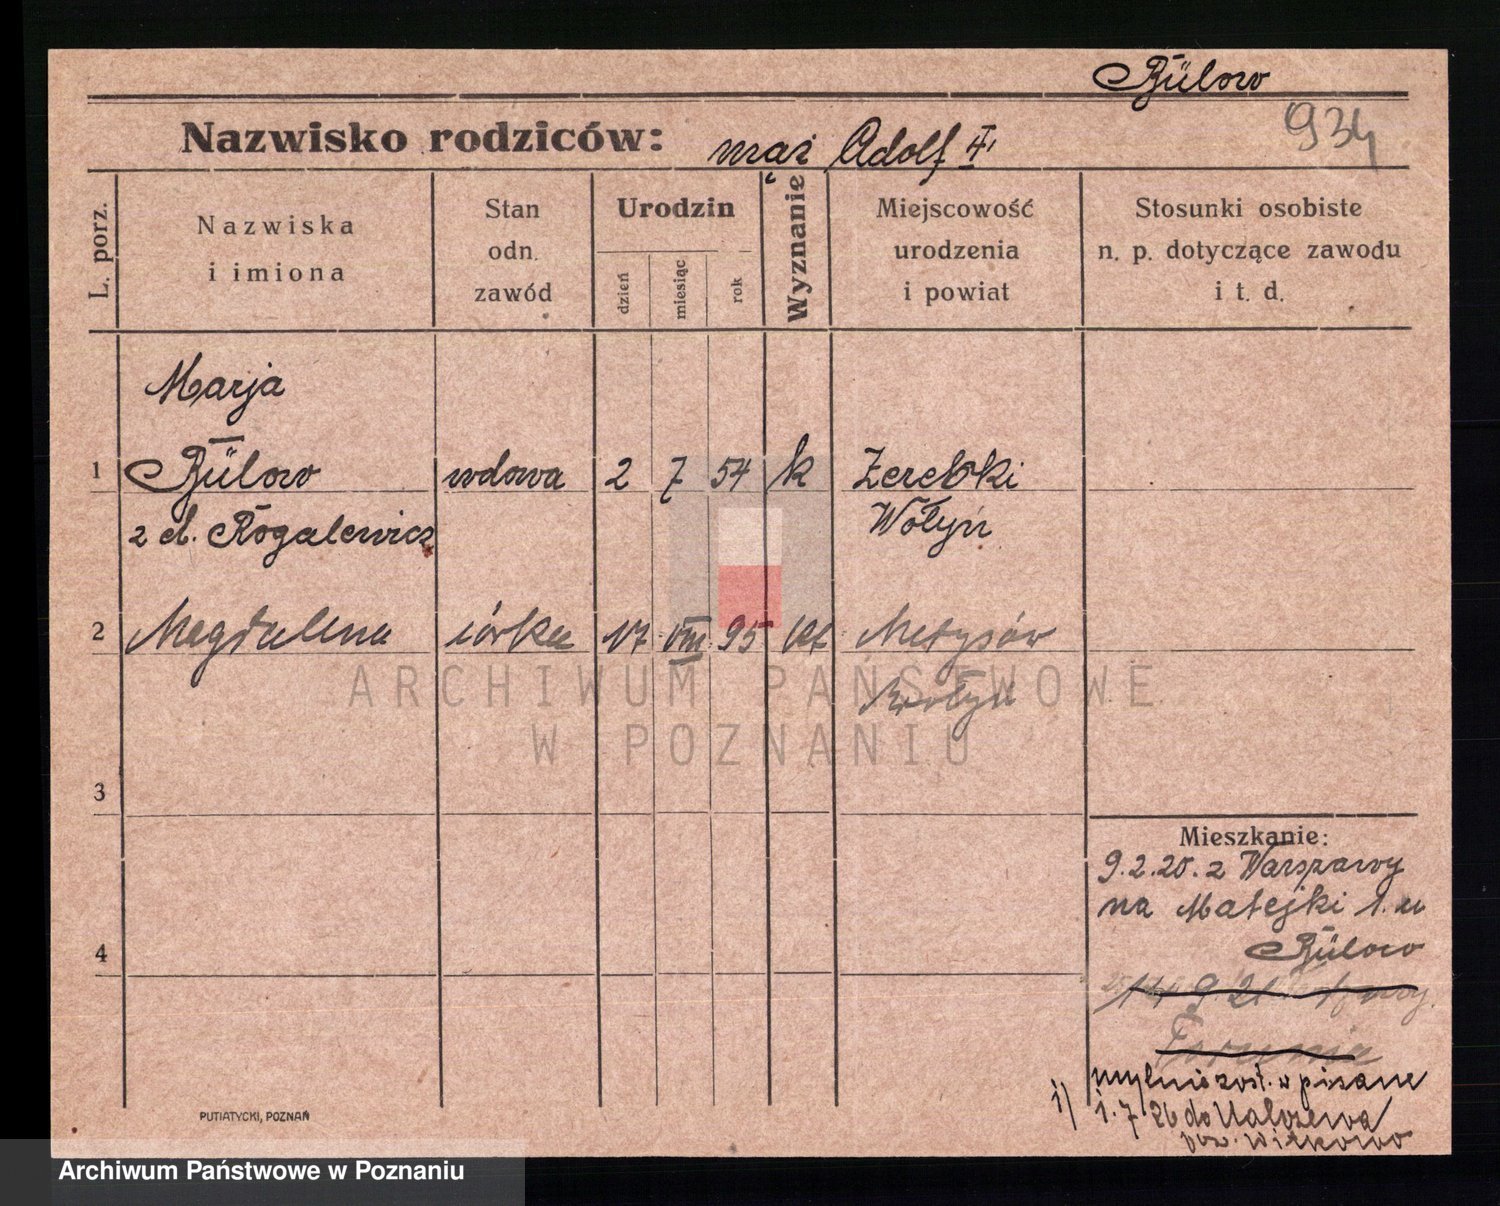 Bülow
934
Nazwisko rodziców: mąż Adolf
L. porz.
Nazwiska
i imiona
Stan
odn.
zawód
Urodzin
dzień
miesiąc
rok
Wyznanie
Miejscowość
urodzenia
i powiat
Stosunki osobiste
n. p. dotyczące zawodu
i t. d.
Marja
1 Bülow wdowa 2 7 54 k Zerebki
z d. Rogalewicz Wołyń
2 Magdalena córka 17 VIII 95 kt
Wołyń
3
4
Mieszkanie:
9.2.20. z Warszawy
na Matejki 1. u
Bülow
9 21
Torunia
mylnie zost. wpisane
1) 1.7 26 do
pow. Witkowo
PUTIATYCKI, POZNAŃ
ARCHIWUM PAŃSTWOWE
W POZNANIU
Archiwum Państwowe w Poznaniu